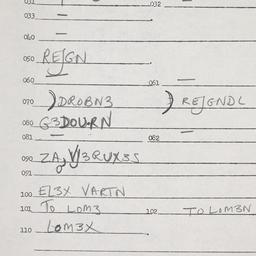 031 032
033 —
040 —
050 REJGN
060 061 —
070 )DROBN3 ) REJGNDL
080 G3DOURN
081 — 082 —
090 ZA, VJ3RUX3S
091
100 EL3X VARTN
101 To LOM3 102 TO LOM3N
110 LOM3X